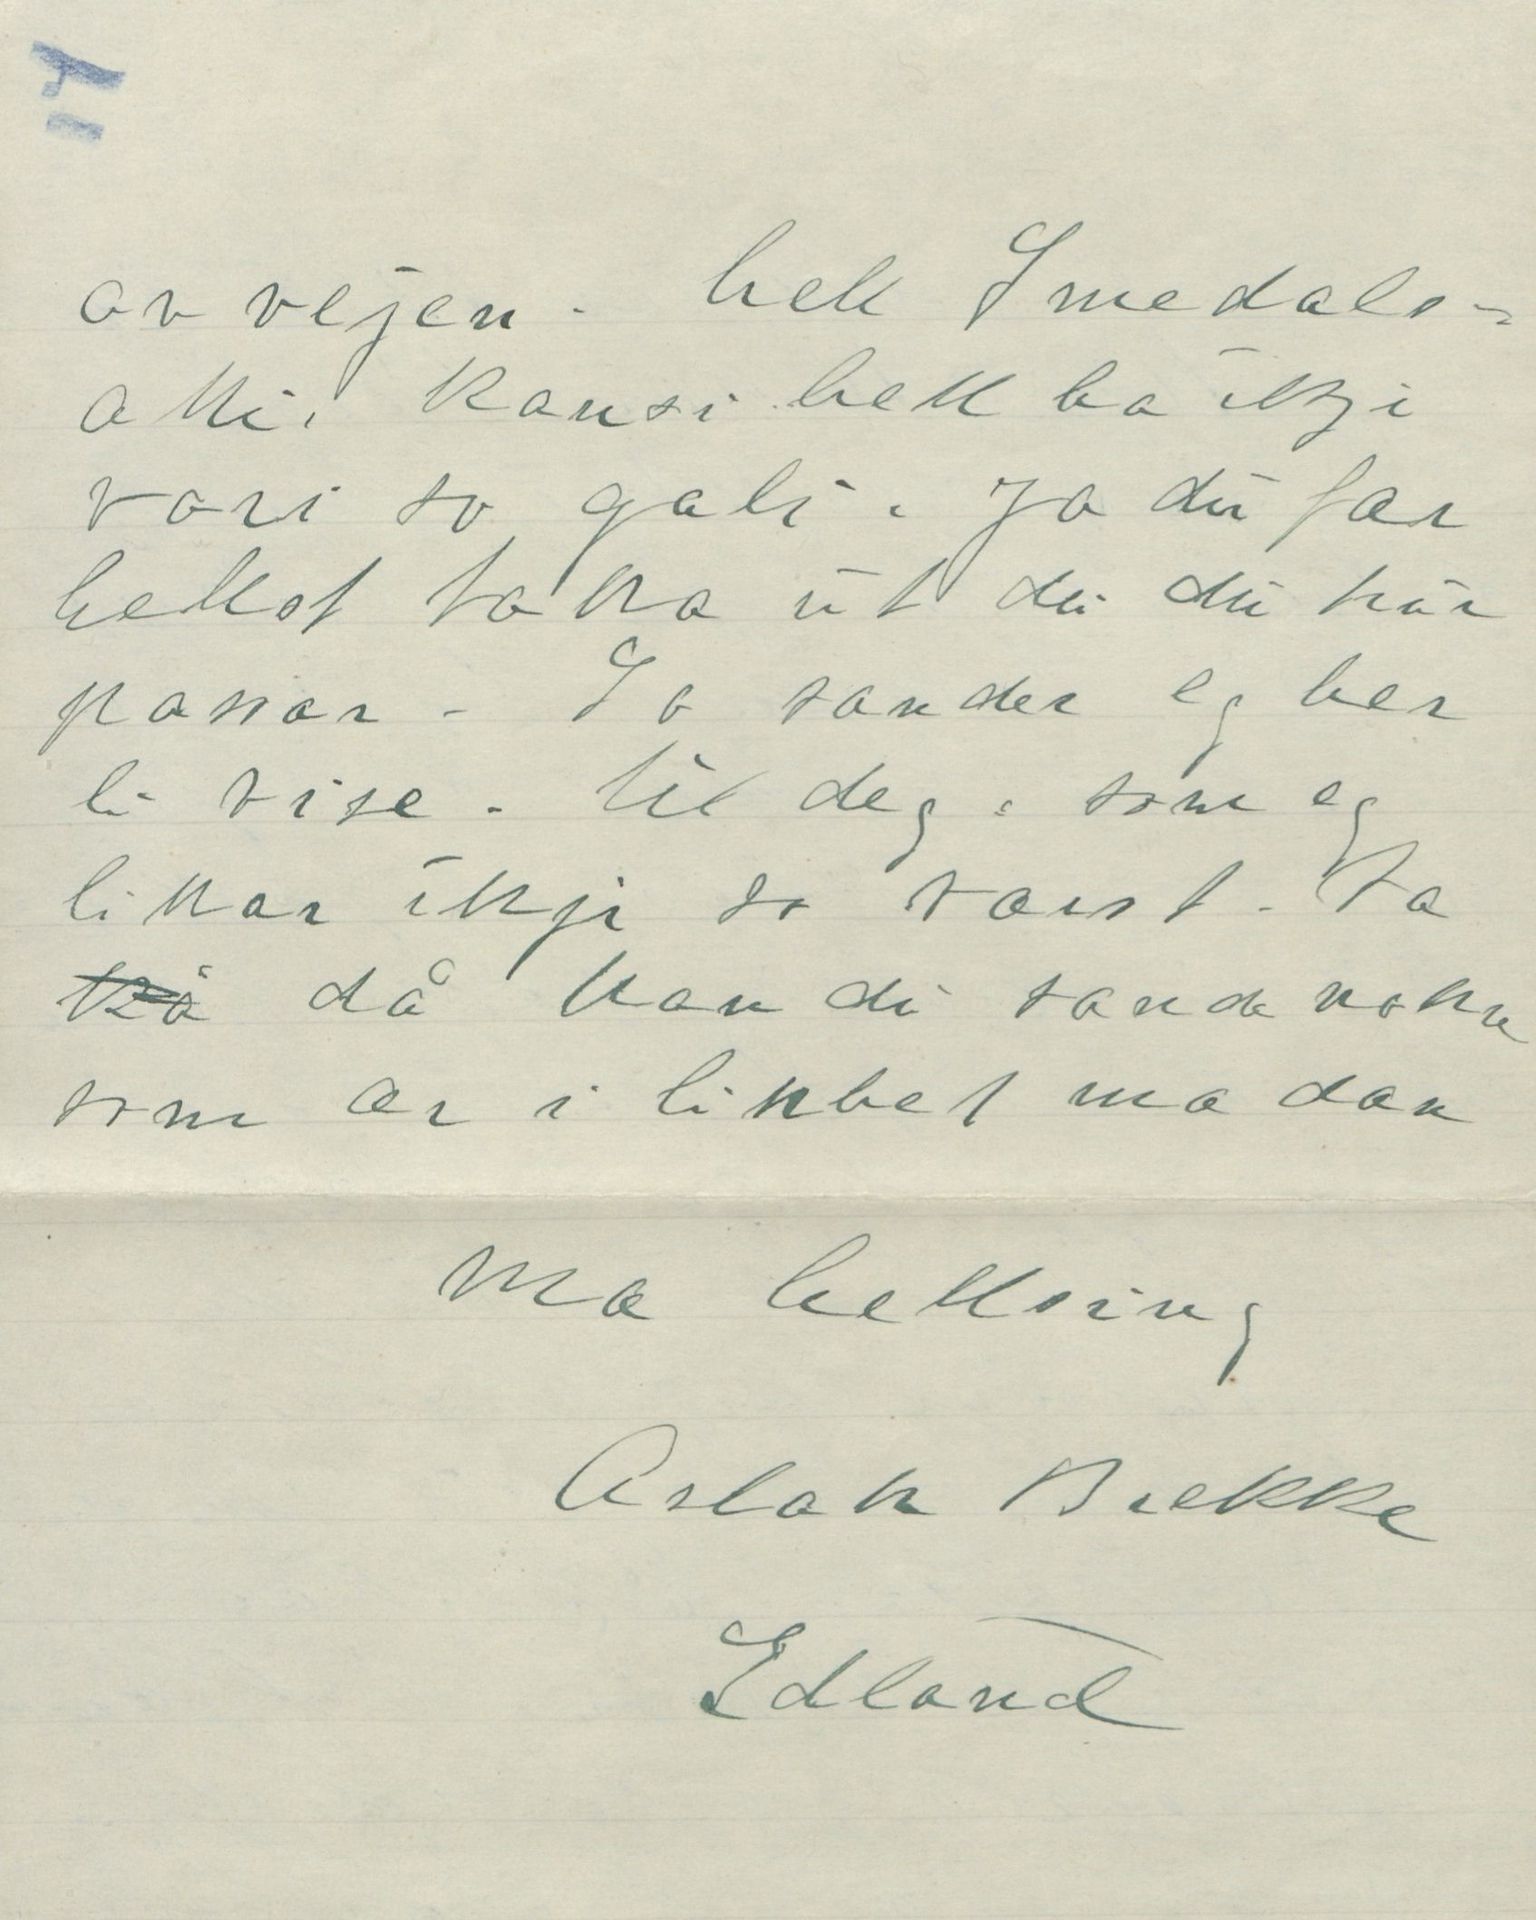 av vejen. hell Smedals-
atti. Kansi hell ha ikji
vari so gali. Ja du får
hellst takka ut du du trur
passar - So sander eg her
li vise. til deg. som eg
likar ikji so vorst. So
då kan du sanda nokk
som ær i likhet ma dan
Ma hellsing
Aslak Brekke
Edland